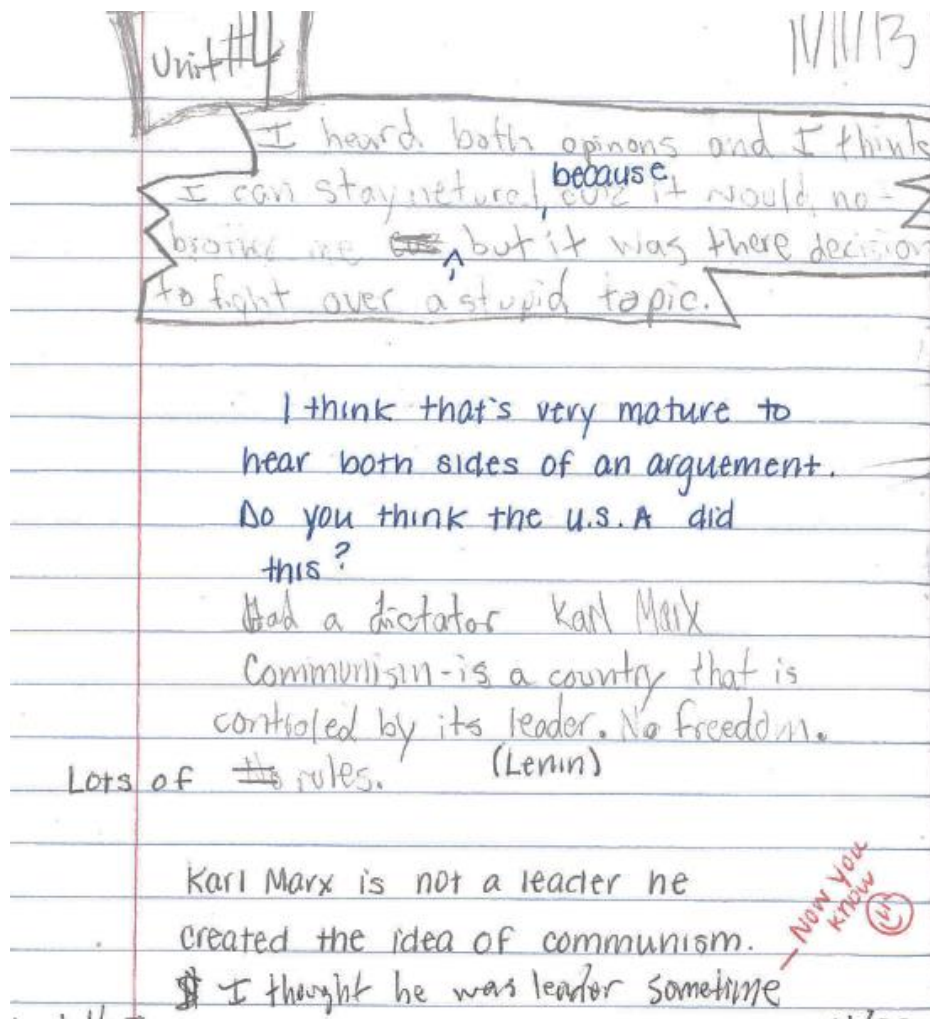 Unit #4
11/11/13
I heard both opinons and I think
because
I can stay netural, cuz it would no-
me but it was there decision
to fight over a stupid topic.
I think that's very mature to
hear both sides of an arguement.
Do you think the U.S.A did
this?
Had a dictator Karl Marx
Communism-is a country that is
controled by its leader. No freedom.
(Lenin)
Lots of rules.
Karl Marx is not a leader he
created the idea of communism.
— Now you
know
I thought he was leader sometime